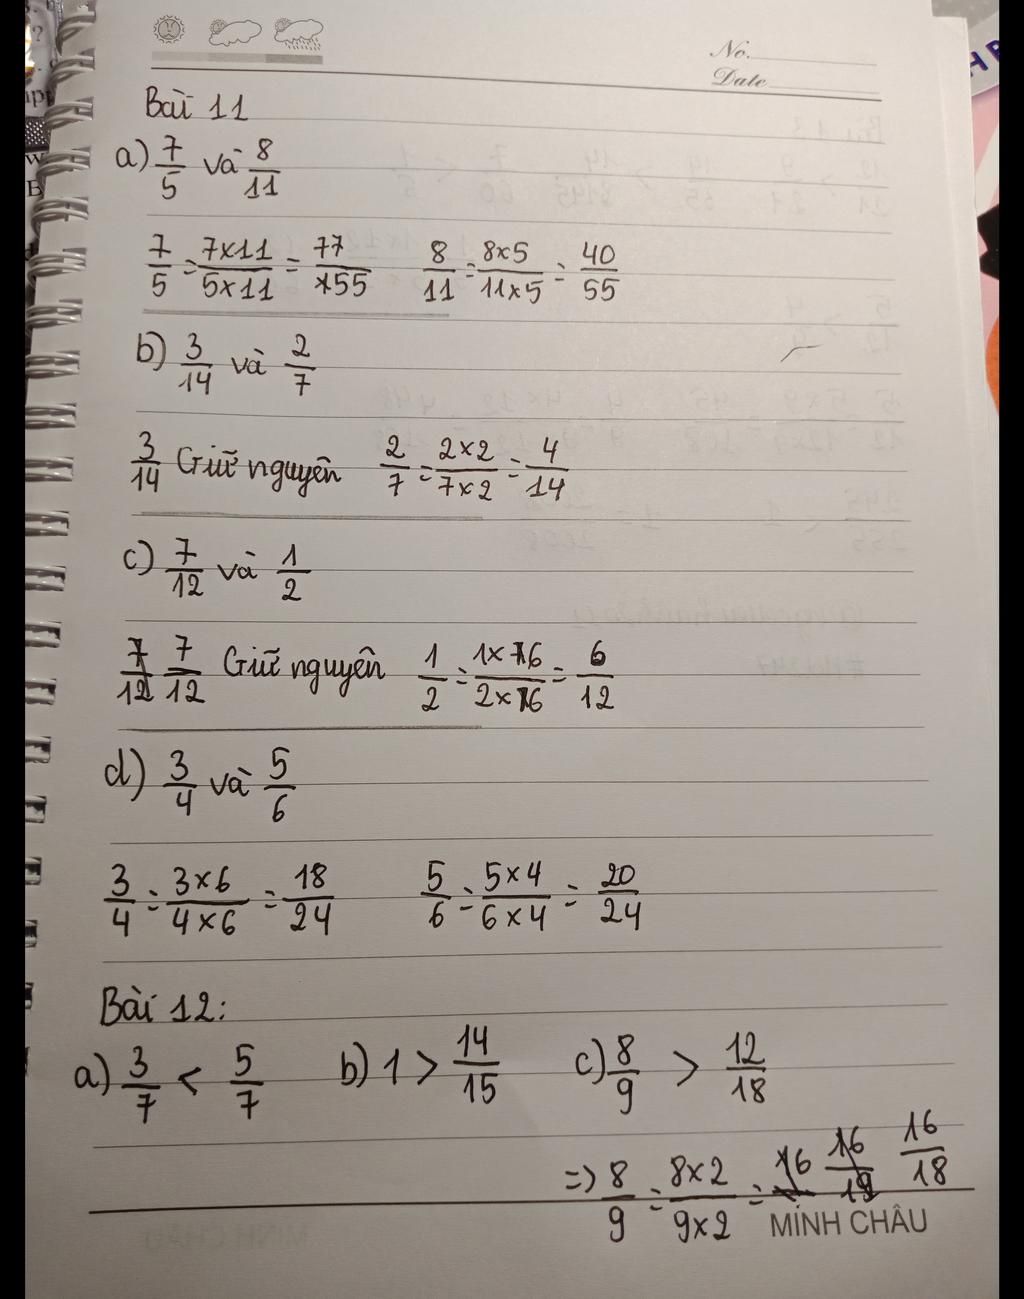 No.
Date
Bài 11
a) 7/5 và 8/11
7/5 = 7x11/5x11 = 77/55 8/11 = 8x5/11x5 = 40/55
b) 3/14 và 2/7
3/14 Giữ nguyên 2/7 = 2x2/7x2 = 4/14
c) 7/12 và 1/2
7/12 7/12 Giữ nguyên 1/2 = 1x6/2x6 = 6/12
d) 3/4 và 5/6
3/4 = 3x6/4x6 = 18/24 5/6 = 5x4/6x4 = 20/24
Bài 12:
a) 3/7 < 5/7 b) 1 > 14/15 c) 8/9 > 12/18
=> 8/9 = 8x2/9x2 = 16 16/18 16/18
MINH CHÂU